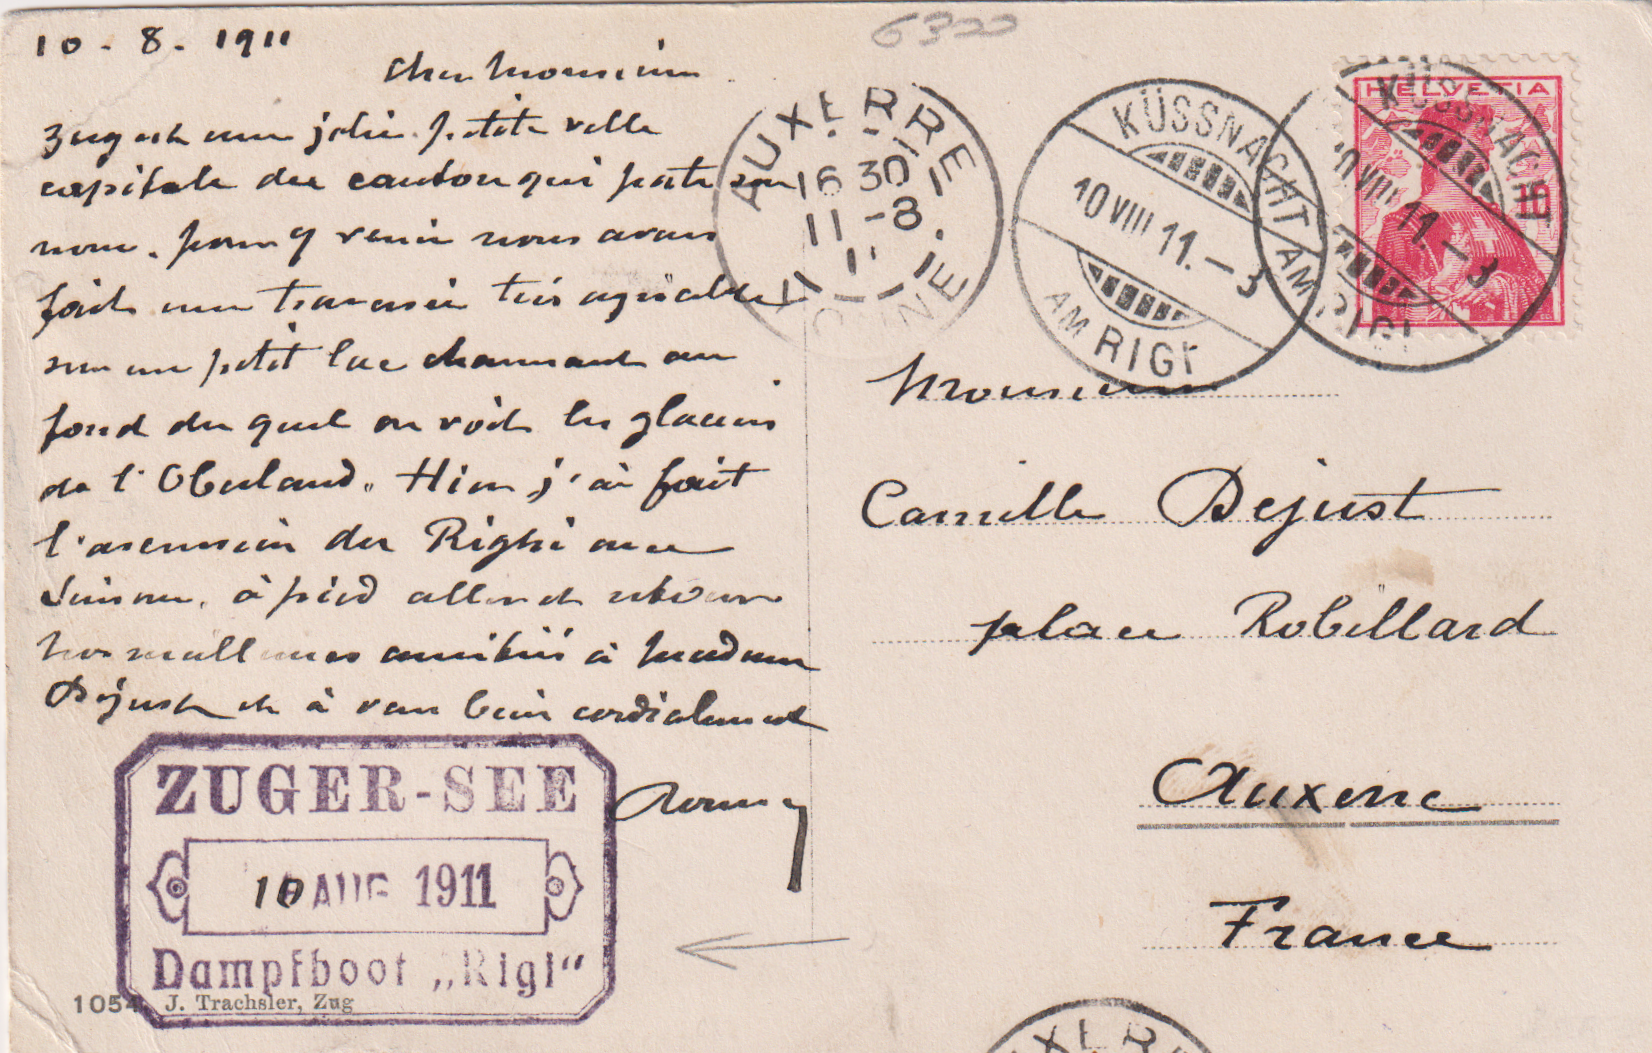 10 - 8 - 1911
6322
Cher Monsieur
Zug est une jolie petite ville
capitale du canton qui porte son
nom. pour y venir nous avons
fait une traversée très agréable
sur un petit lac charmant au
fond du quel on voit les glaciers
de l'Oberland. Hier j'ai fait
l'ascension du Righi avec
à pied aller et retour
amitiés à Madame
Dejust et à vous bien cordialement
AUXERRE
16 30
11 -8
11
YONNE
KÜSSNACHT
10 VIII 11. - 3
AM RIGI
KÜSSNACHT
10 VIII 11. - 3
AM RIGI
HELVETIA
10
Monsieur
Camille Dejust
place Robillard
Auxerre
France
ZUGER-SEE
10 AUG 1911
Dampfboot „Rigi“
1054 J. Trachsler, Zug
AUXERRE